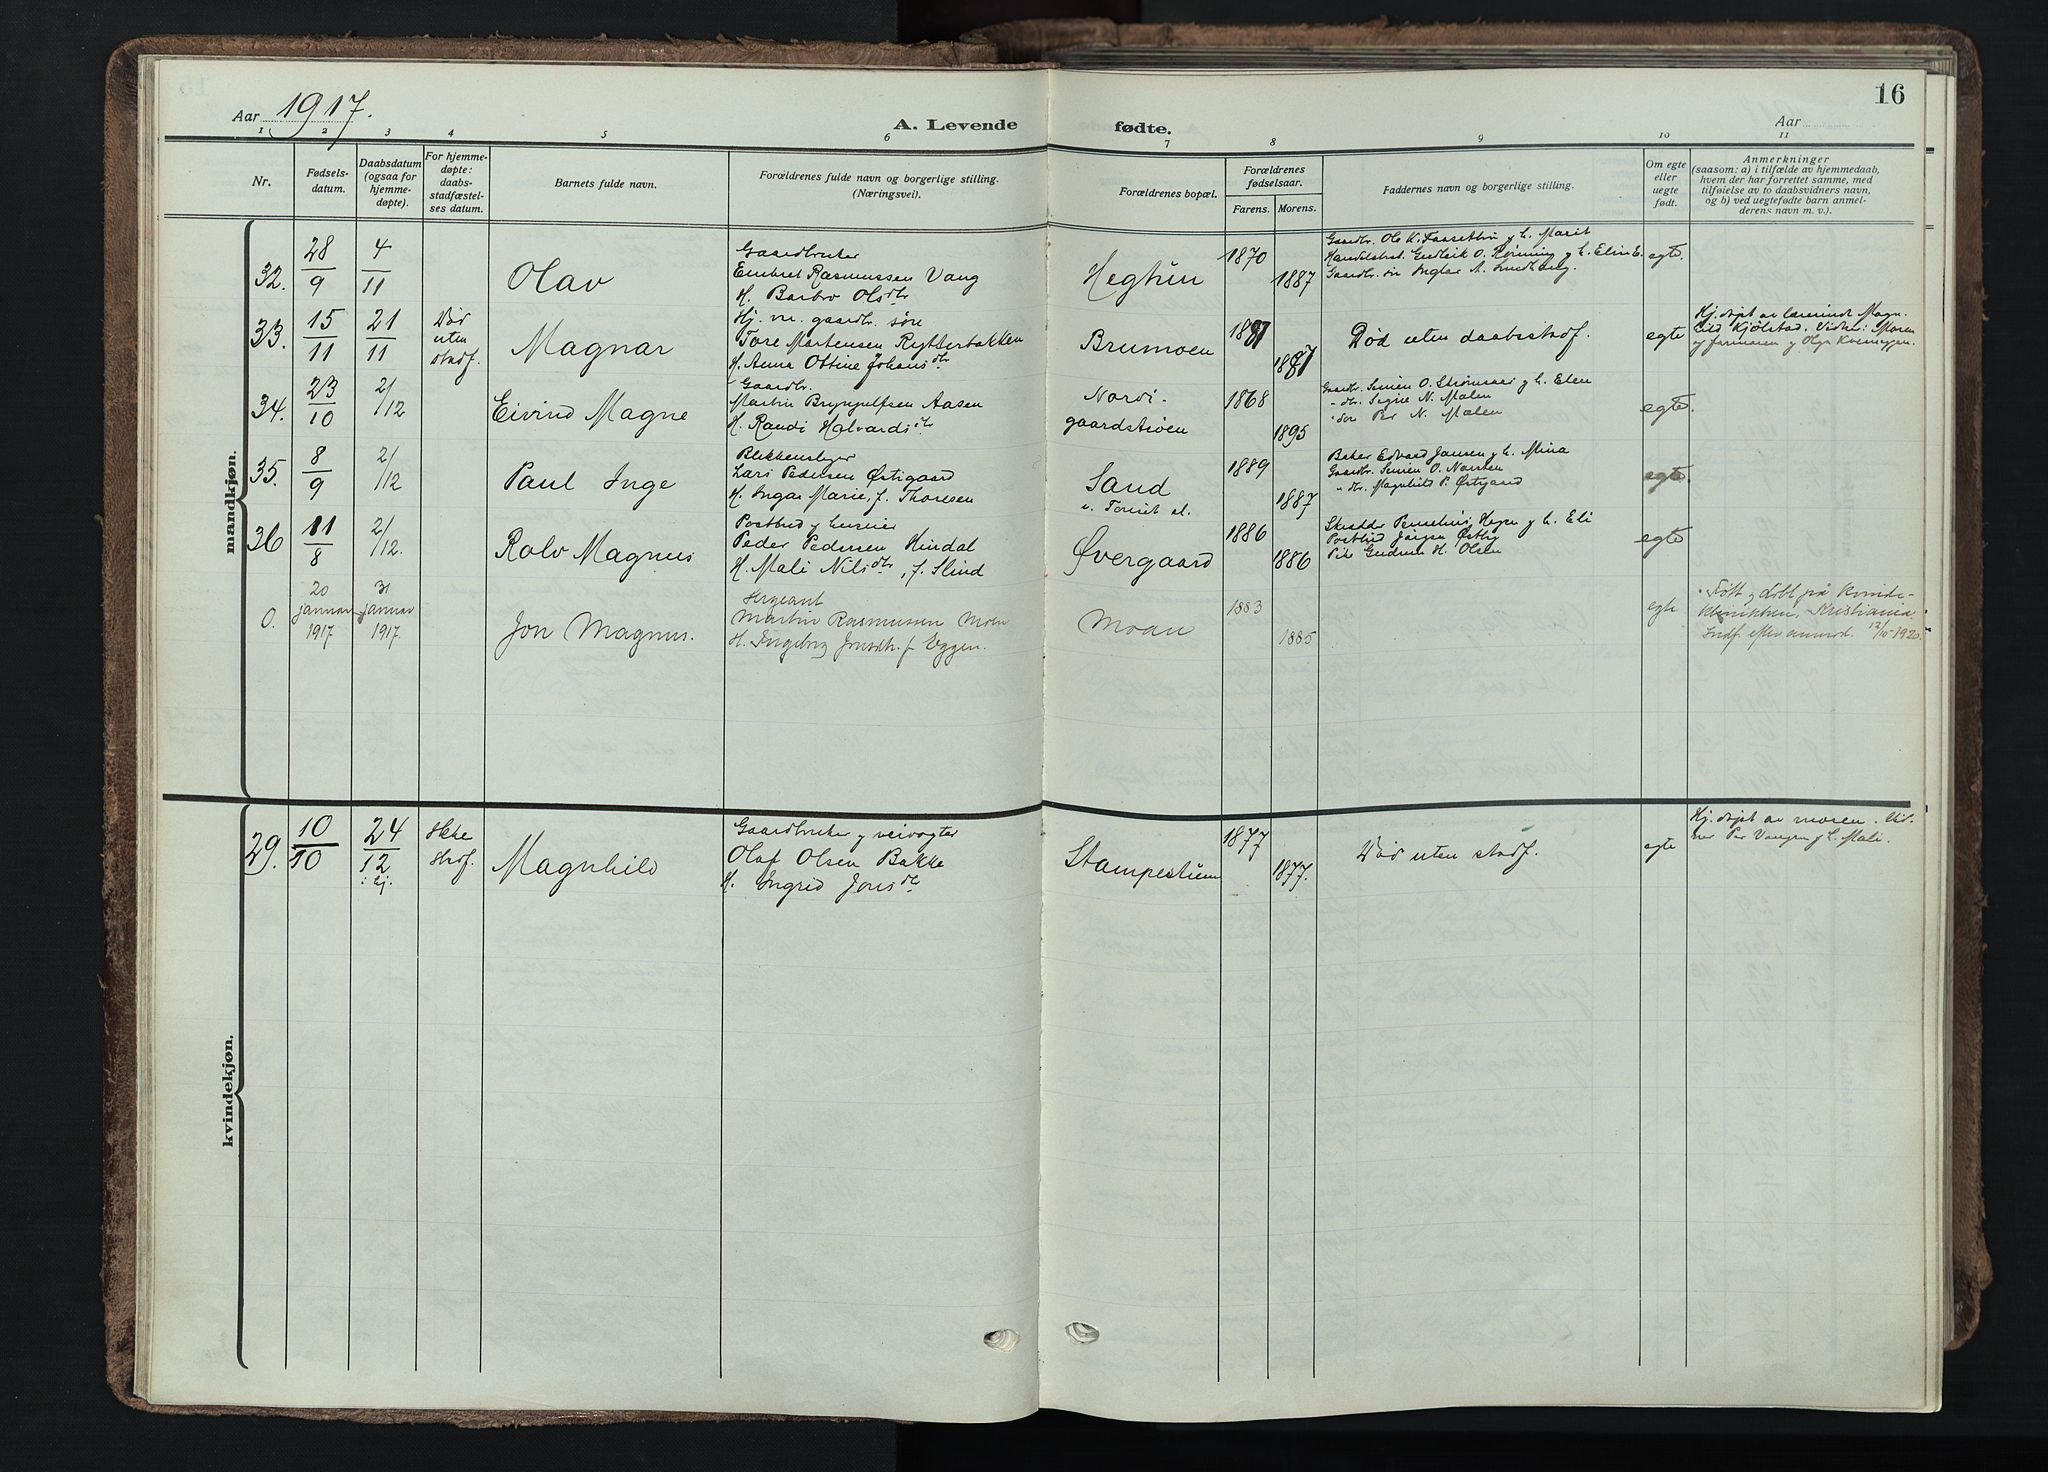 16
Aar 1917.
A. Levende fødte.
Aar
1 2 3 4 5 6 7 8 9 10 11
Nr.
Fødsels-
datum.
Daabsdatum
(ogsaa for
hjemme-
døpte).
For hjemme-
døpte:
daabs-
stadfæstel-
ses datum.
Barnets fulde navn.
Forældrenes fulde navn og borgerlige stilling.
(Næringsvei).
Forældrenes bopæl.
Forældrenes
fødselsaar.
Farens. Morens.
Faddernes navn og borgerlige stilling.
Om egte
eller
uegte
født.
Anmerkninger
(saasom: a) i tilfælde av hjemmedaab,
hvem der har forrettet samme, med
tilføielse av to daabsvidners navn,
og b) ved uegtefødte barn anmel-
derens navn m. v.).
mandkjøn.
32.
28/9
4/11
Olav
Gaardbruker
Embret Rasmussen Vang
H. Barbro Olsdtr
Hegtun
1870
1887
Gaardbr. Ole K. g h. Marit
O. Rønning g h. Elin E.
Gaardbr. søn
egte.
33.
15/11
21/11
Død
uten
stadf.
Magnar
Hj. m. gaardbr. søn
Tore Mortensen Rytterbakken
H. Anna Ottine Johansdtr
Brumoen
1881
1887
Død uten daabsstadf.
egte
Hj. døpt av lærerinde Magn-
hild Kjølstad. Vidner: Moren
og farmoren g Olga
34.
23/10
2/12
Eivind Magne
Gaardbr.
Martin Brynjulfsen Aasen
H. Randi Halvardsdtr
Nordi-
gaardstrøen
1868
1895
Gaardbr. O. g h. Elen
" dtr. Signe N. Mælen
" søn Per N. Mælen
egte.
35.
8/9
2/12
Paul Inge
Blikkenslager
Lars Pedersen Østigaard
H. Inga Marie, f. Thoresen
Sand
i Tønset st.
1889
1887
Baker Edvard Jansen g h. Mina
Gaardbr. O.
" dtr. Magnhild P. Østigaard
egte.
36
11/8
2/12.
Rolv Magnus
Postbud g huseier
Peder Pedersen Hindal
H. Mali Nilsdtr, f. Slind
Øvergaard
1886
1886
Skrædder g h. Eli
Postbud Jørgen Østby
Pike Gudrun H. Olsen
egte
0.
20
januar
1917
31
januar
1917
Jon Magnus.
Sergeant
Martin Rasmussen Moen
H. Ingeborg Jonsdtr. f. Eggen.
Moan
1883
1885
egte
Født g døbt på Kvinde-
klinikken, Kristiania
Indf. efter anmod. 12/10-1920.
kvindekjøn.
29.
10/10
24/12
i hj.
Ikke
stadf.
Magnhild
Gaardbruker g veivogter
Olaf Olsen Bakke
H. Ingrid Jonsdtr
Stampestuen
1877
1877.
Død uten stadf.
egte
Hj. døpt av moren. Vid-
ner Per Vangen g h. Mali.